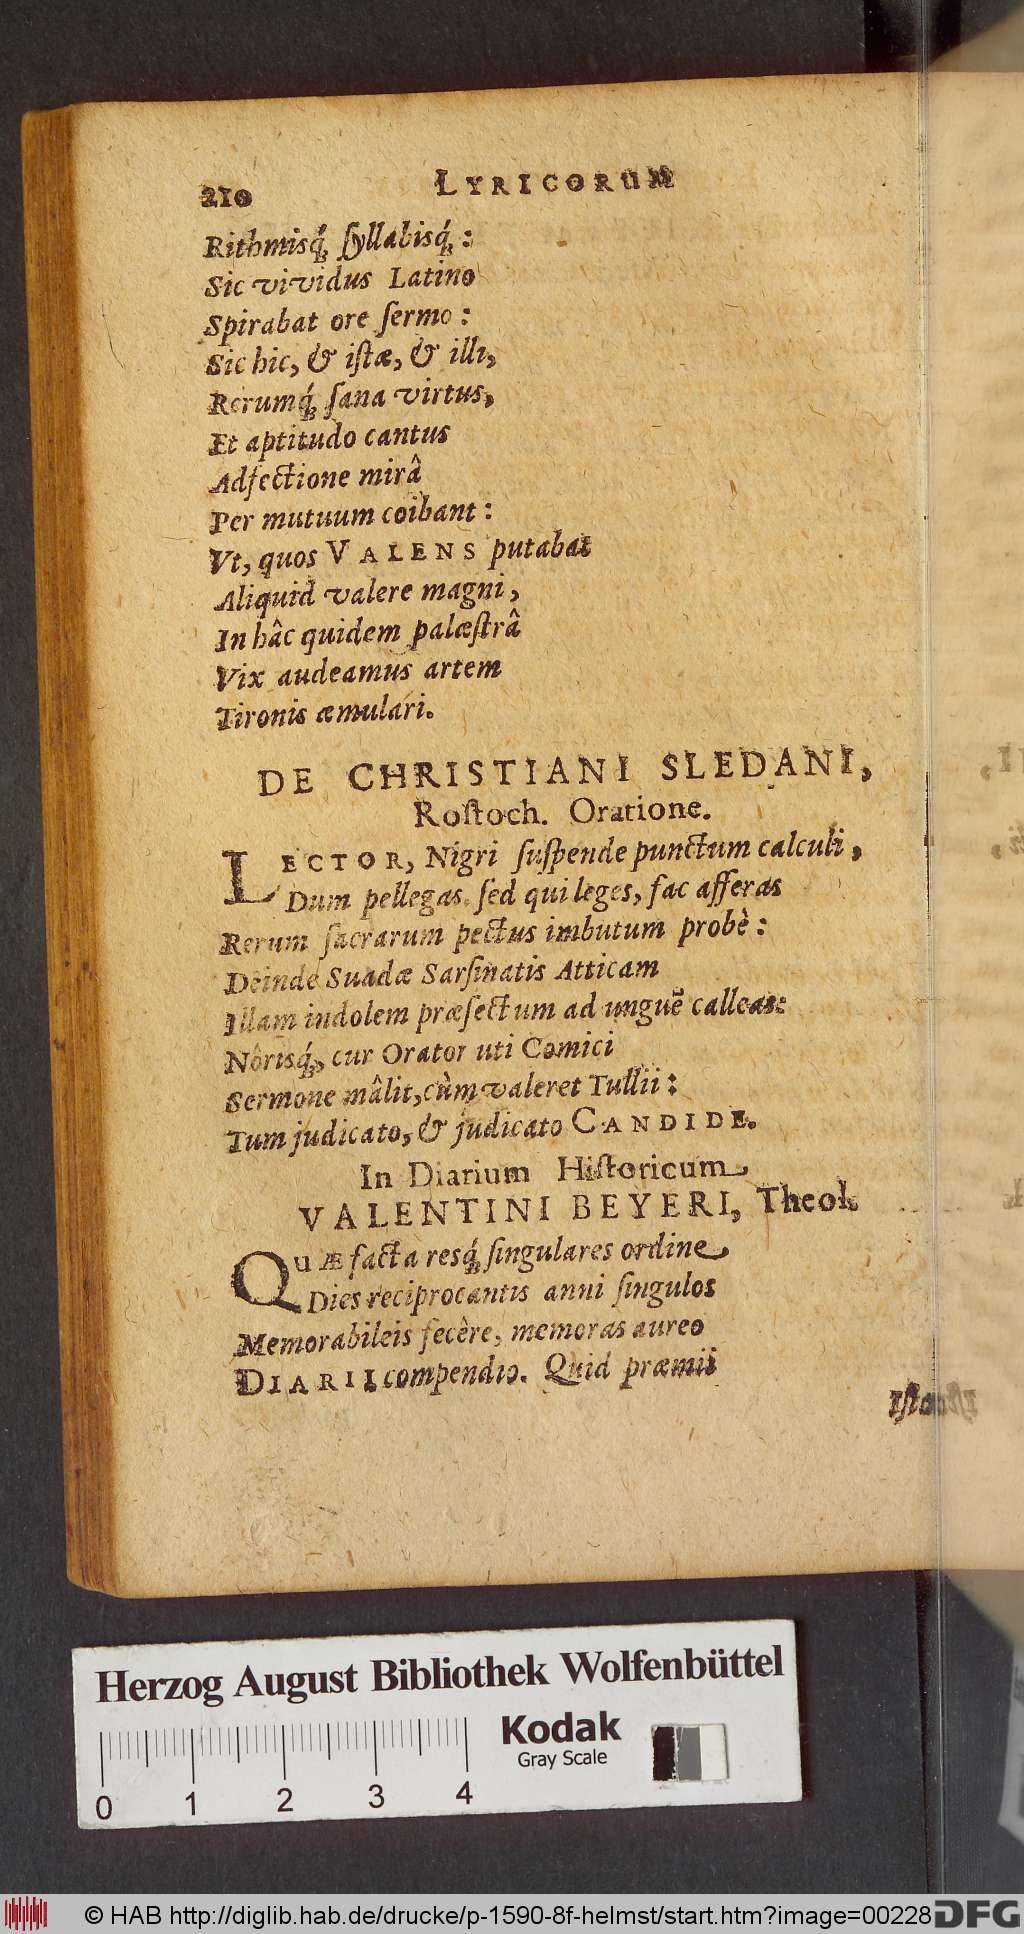 210 LYRICORUM
Rithmisq́; ſyllabisq́;:
Sic vividus Latino
Spirabat ore ſermo:
Sic hic, & iſtæ, & illi,
Rerumq́; ſana virtus,
Et aptitudo cantus
Adfectione mirâ
Per mutuum coibant:
Vt, quos VALENS putabat
Aliquid valere magni,
In hâc quidem palæſtrâ
Vix audeamus artem
Tironis æmulari.
DE CHRISTIANI SLEDANI,
Roſtoch. Oratione.
LECTOR, Nigri ſuſpende punctum calculi,
Dum pellegas. ſed qui leges, fac afferas
Rerum ſacrarum pectus imbutum probè:
Deinde Suadæ Sarſinatis Atticam
Illam indolem præſectum ad unguẽ calleas:
Nôrisq́;, cur Orator uti Comici
Sermone mâlit, cùm valeret Tullii:
Tum judicato, & judicato CANDIDE.
In Diarium Hiſtoricum
VALENTINI BEYERI, Theol.
QUÆ facta resq́; ſingulares ordine
Dies reciprocantis anni ſingulos
Memorabileis fecère, memoras aureo
DIARII compendio. Quid præmii
Iſtoc
Herzog August Bibliothek Wolfenbüttel
Kodak
Gray Scale
0 1 2 3 4
© HAB http://diglib.hab.de/drucke/p-1590-8f-helmst/start.htm?image=00228
DFG